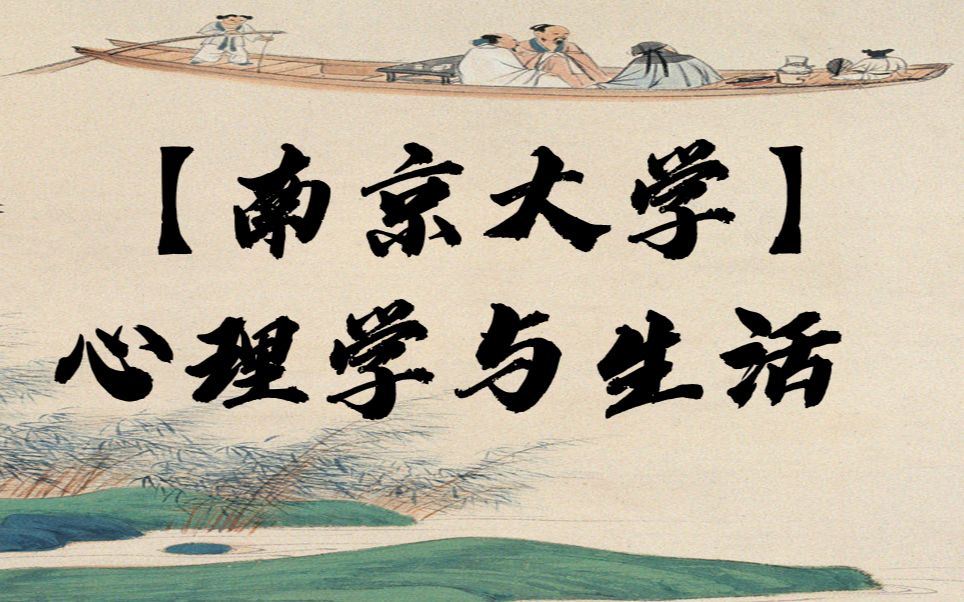 【南京大学】
心理学与生活